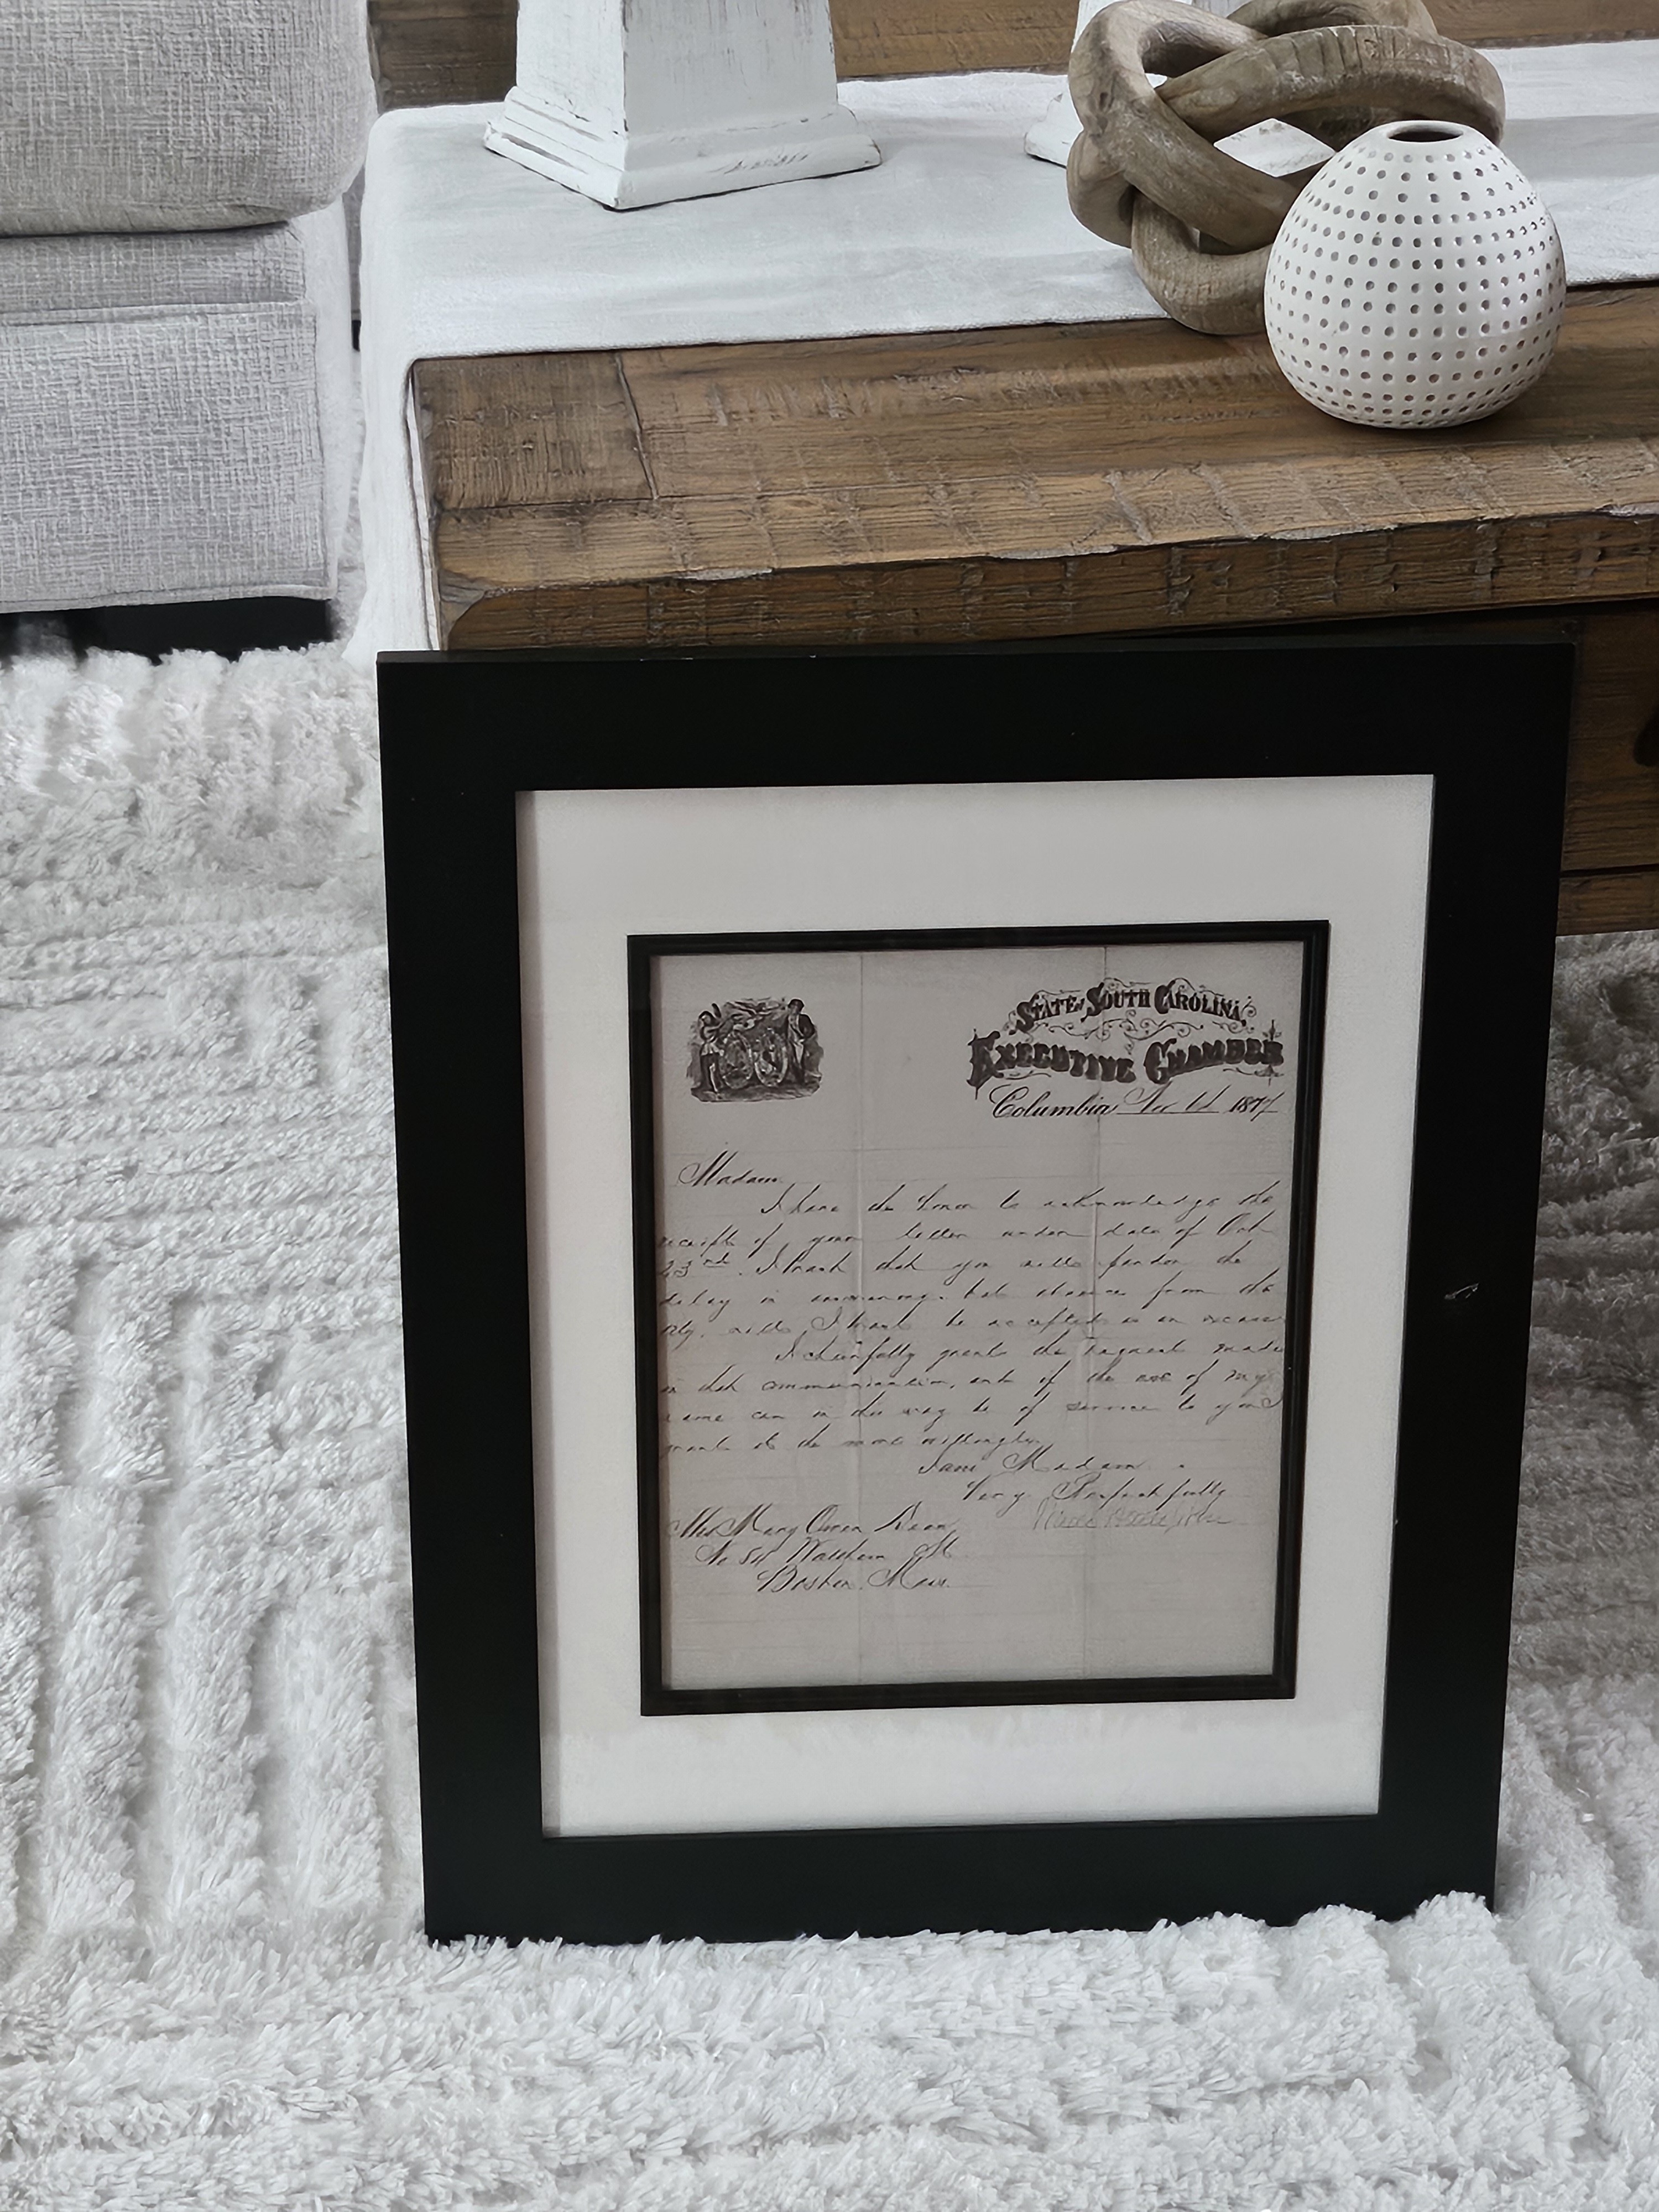 STATE of SOUTH CAROLINA,
EXECUTIVE CHAMBER
Columbia, 1877
Madam,
I have the honor to acknowledge the
receipt of your letter under date of Oct
23rd. I trust that you will pardon the
delay in answering. but absence from the
city, will, I trust be accepted as an excuse
I cheerfully grant the request made
in that communication, and if the use of my
name can in this way be of service to you I
grant it the more willingly.
I am Madam
Very Respectfully
Mrs Mary Owen
No 54 St
Boston. Mass.